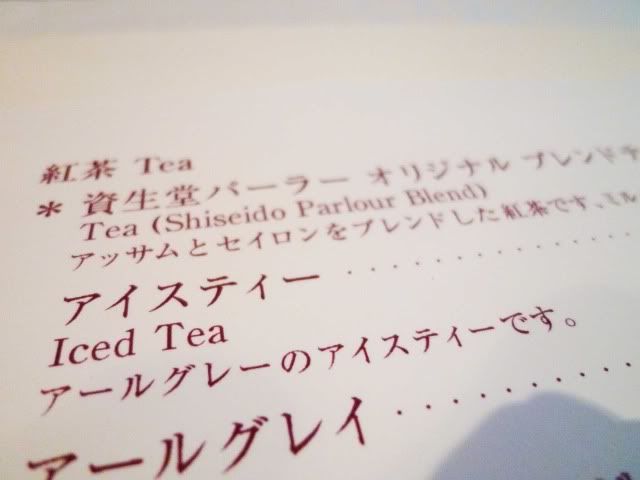 紅茶 Tea
* 資生堂パーラー オリジナル ブレンドテ
Tea (Shiseido Parlour Blend)
アッサムとセイロンをブレンドした紅茶です、ミル
アイスティー ··············
Iced Tea
アールグレーのアイスティーです。
アールグレイ ··········